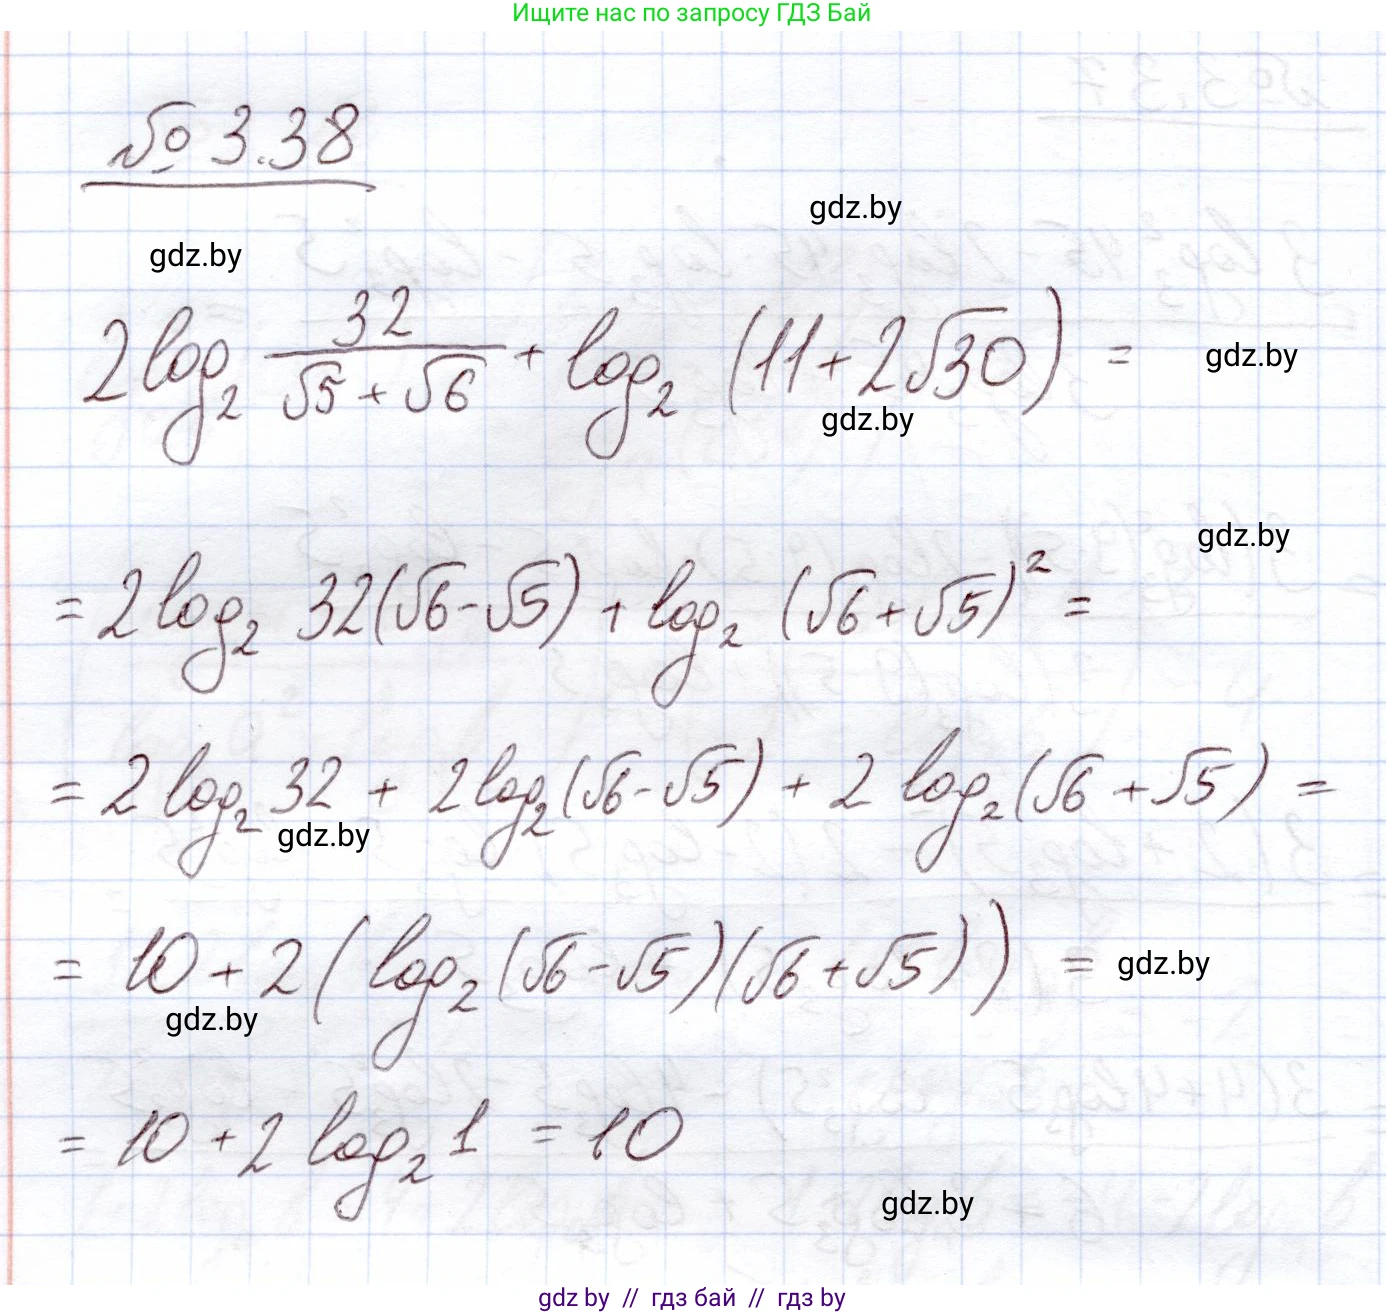 Ищите нас по запросу ГДЗ Бай
№ 3.38
gdz.by
gdz.by
2 log₂ 32/(√5 + √6) + log₂ (11 + 2√30) =
gdz.by
gdz.by
gdz.by
= 2 log₂ 32(√6 - √5) + log₂ (√6 + √5)² =
= 2 log₂ 32 + 2 log₂ (√6 - √5) + 2 log₂ (√6 + √5) =
gdz.by
= 10 + 2 ( log₂ (√6 - √5)(√6 + √5) ) =
gdz.by
gdz.by
= 10 + 2 log₂ 1 = 10
gdz.by
gdz by // гдз бай // гдз by